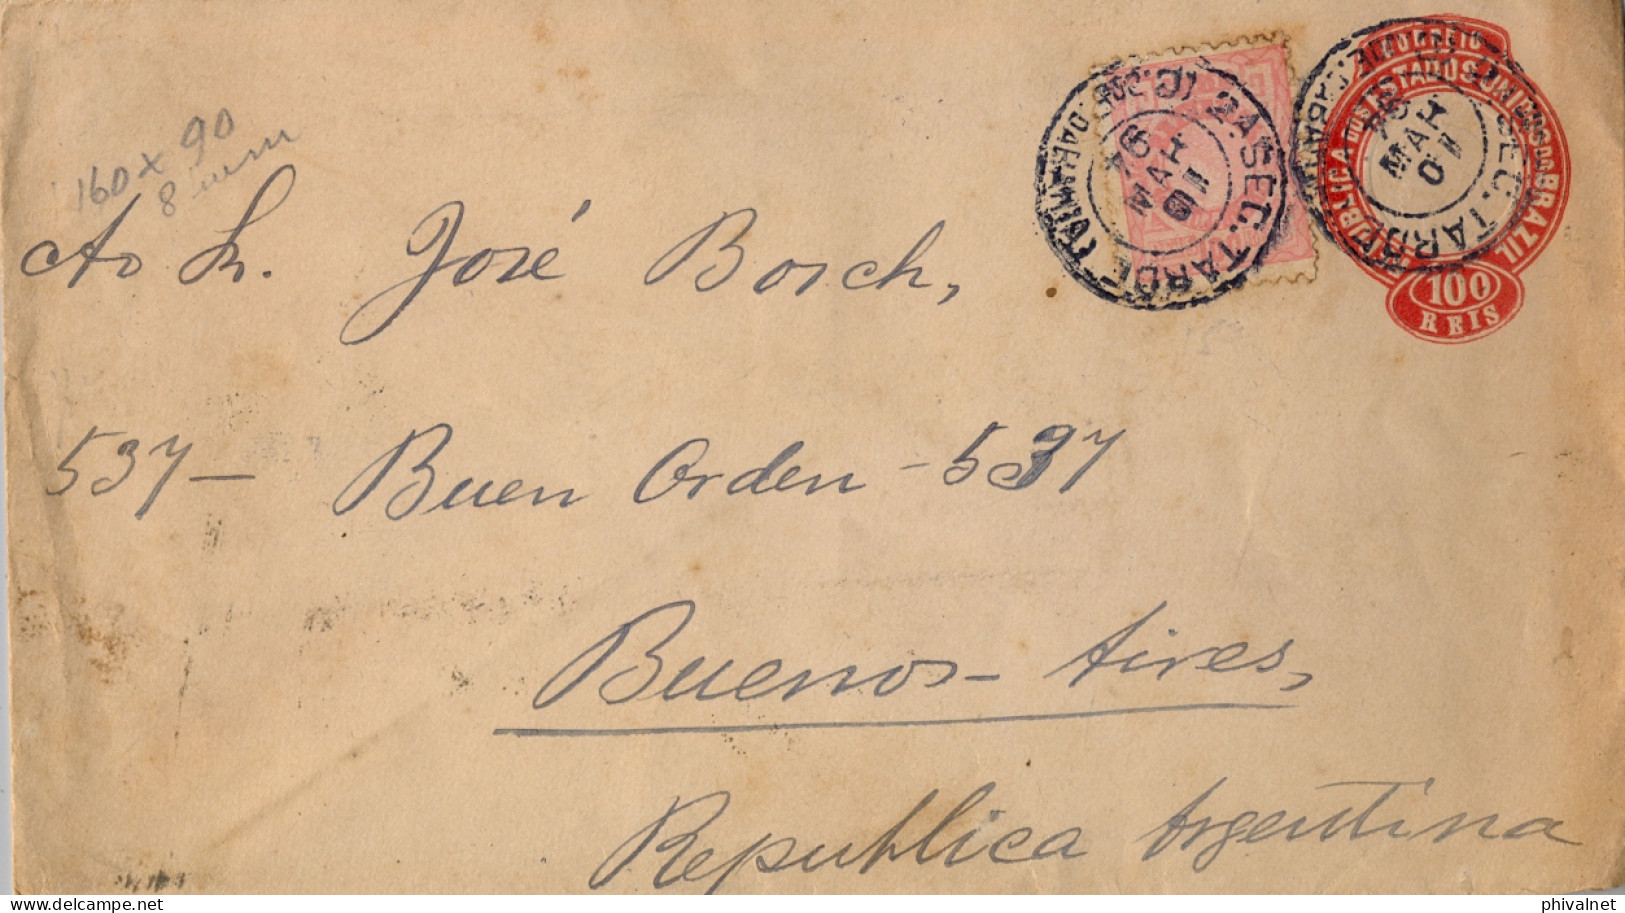 160 x 90
8 mm
Ao Sr. José Bosch,
537 — Buen Orden - 537
Buenos - Aires,
Republica Argentina
CORREIO
REPUBLICA DOS ESTADOS UNIDOS DO BRAZIL
100
REIS
2A SEC. TARDE
MAI
01
2A SEC. TARDE
MAI
01
phivalnet